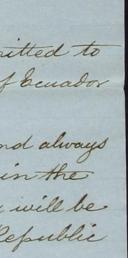 mitted to
of Ecuador
nd always
in the
will be
Republic